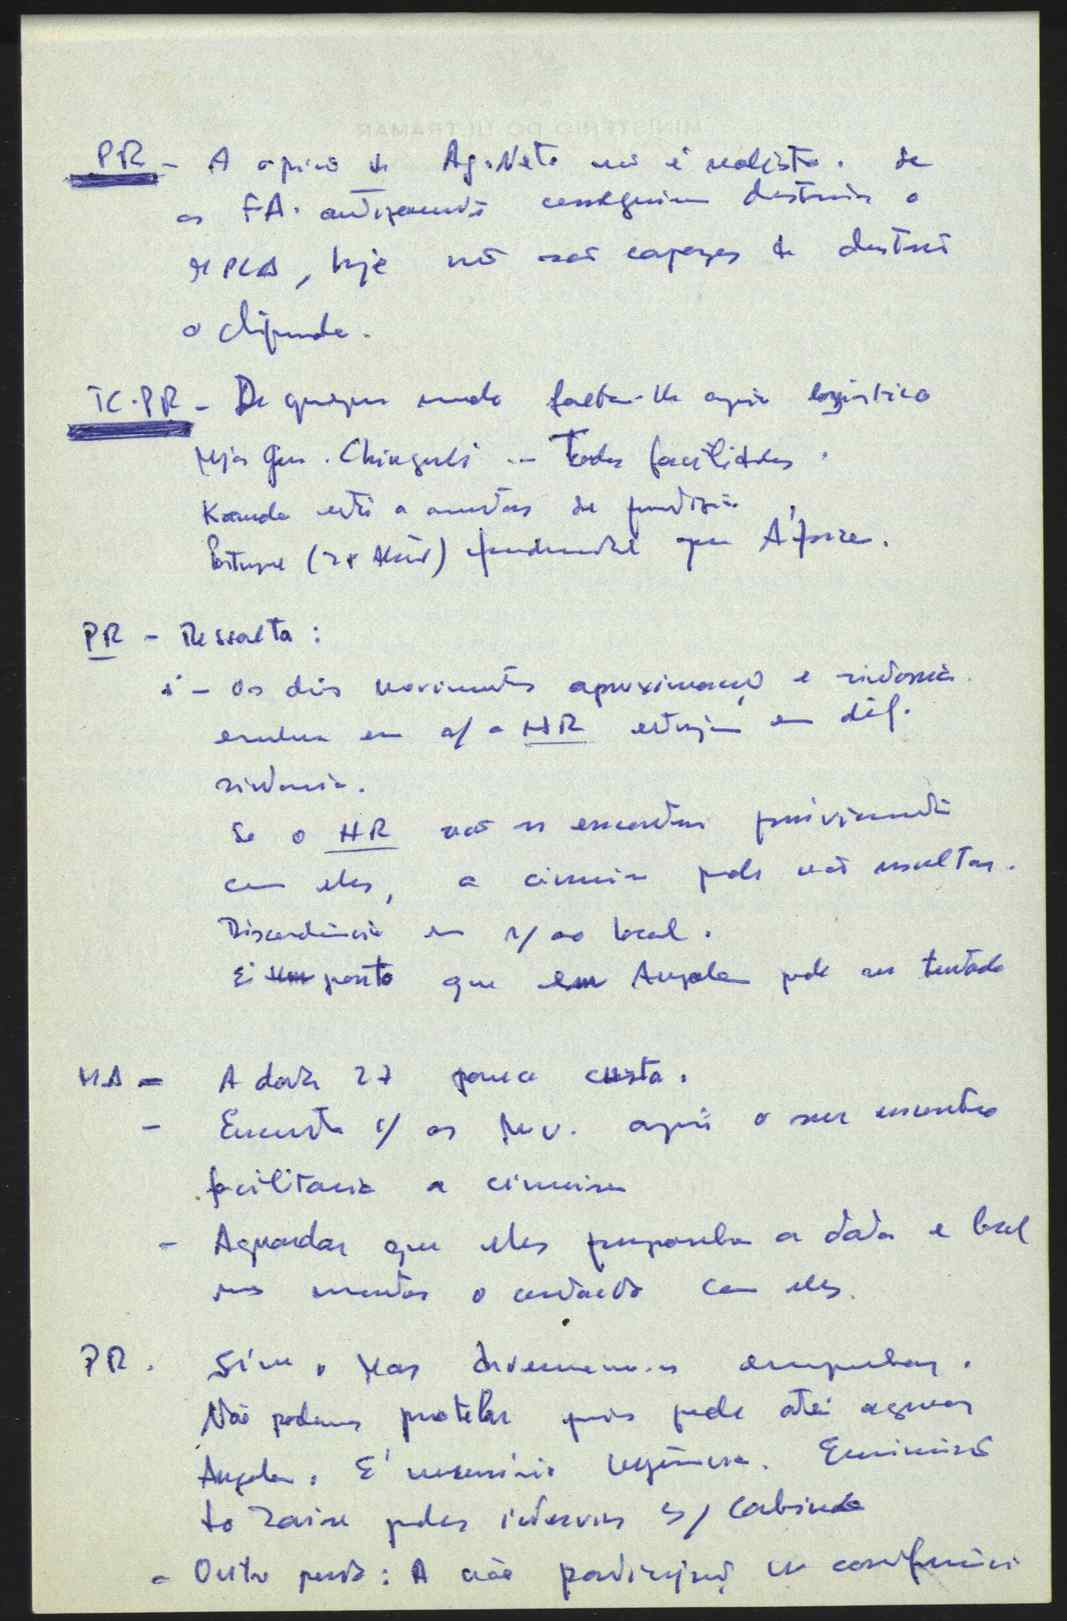 PR - A opinião de Ag. Neto não é realista. Se
as FA. antigamente conseguiam destruir o
MPLA, hoje não são capazes de destruir
o Chipenda.
TC.PR - De qualquer modo falta-lhe apoio logístico
Todas facilidades.
Kaunda está a
Portugal (28 Abril) que África.
PR - Ressalta:
1 - Os dois movimentos aproximação e sintonia.
embora em r/ a HR estejam em dif.
sintonia.
Se o HR não se encontrar previamente
com eles, a cimeira pode não resultar.
Discordância em r/ ao local.
É ponto que em Angola pode ser tentado
MA - A data 27 pouco custa.
- Encontro c/ os Mov. após o seu encontro
facilitaria a cimeira
- Aguardar que eles proponham a data e local
mas manter o contacto com eles.
PR. Sim. Mas devemo-nos empenhar.
Não podemos protelar pois pode até agravar
Angola. É necessário urgência.
do Zaire poder intervir s/ Cabinda
- Outro ponto: A não participação na conferência